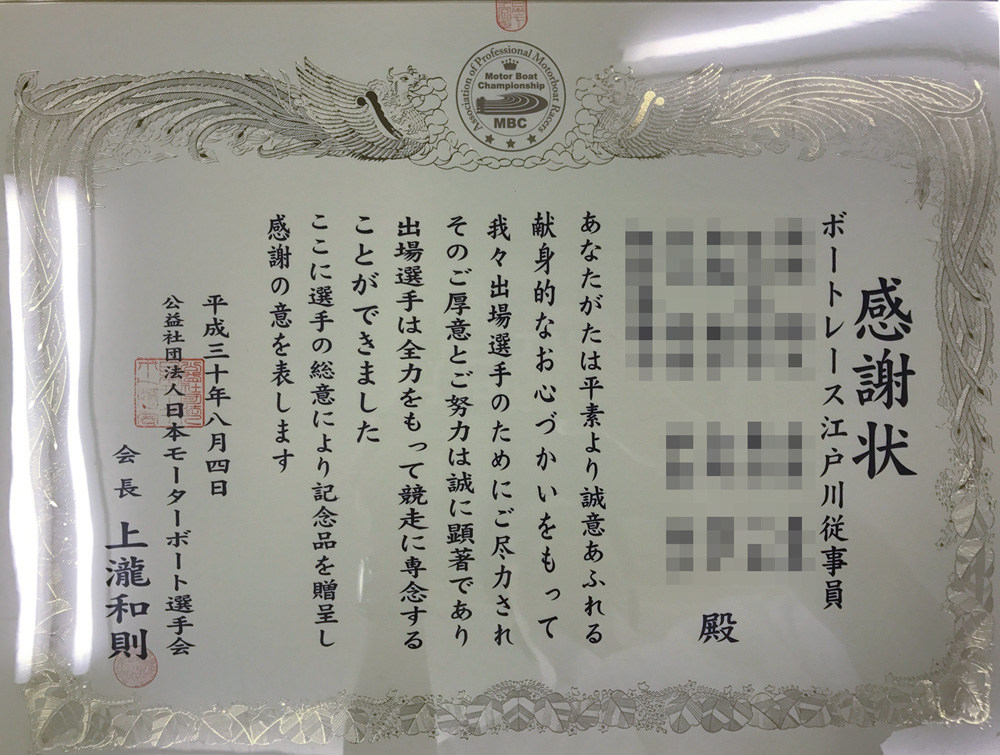 Association of Professional Motorboat Racers
Motor Boat
Championship
MBC
感謝状
ボートレース江戸川従事員
殿
あなたがたは平素より誠意あふれる
献身的なお心づかいをもって
我々出場選手のためにご尽力され
そのご厚意とご努力は誠に顕著であり
出場選手は全力をもって競走に専念する
ことができました
ここに選手の総意により記念品を贈呈し
感謝の意を表します
平成三十年八月四日
公益社団法人日本モーターボート選手会
会長 上瀧和則